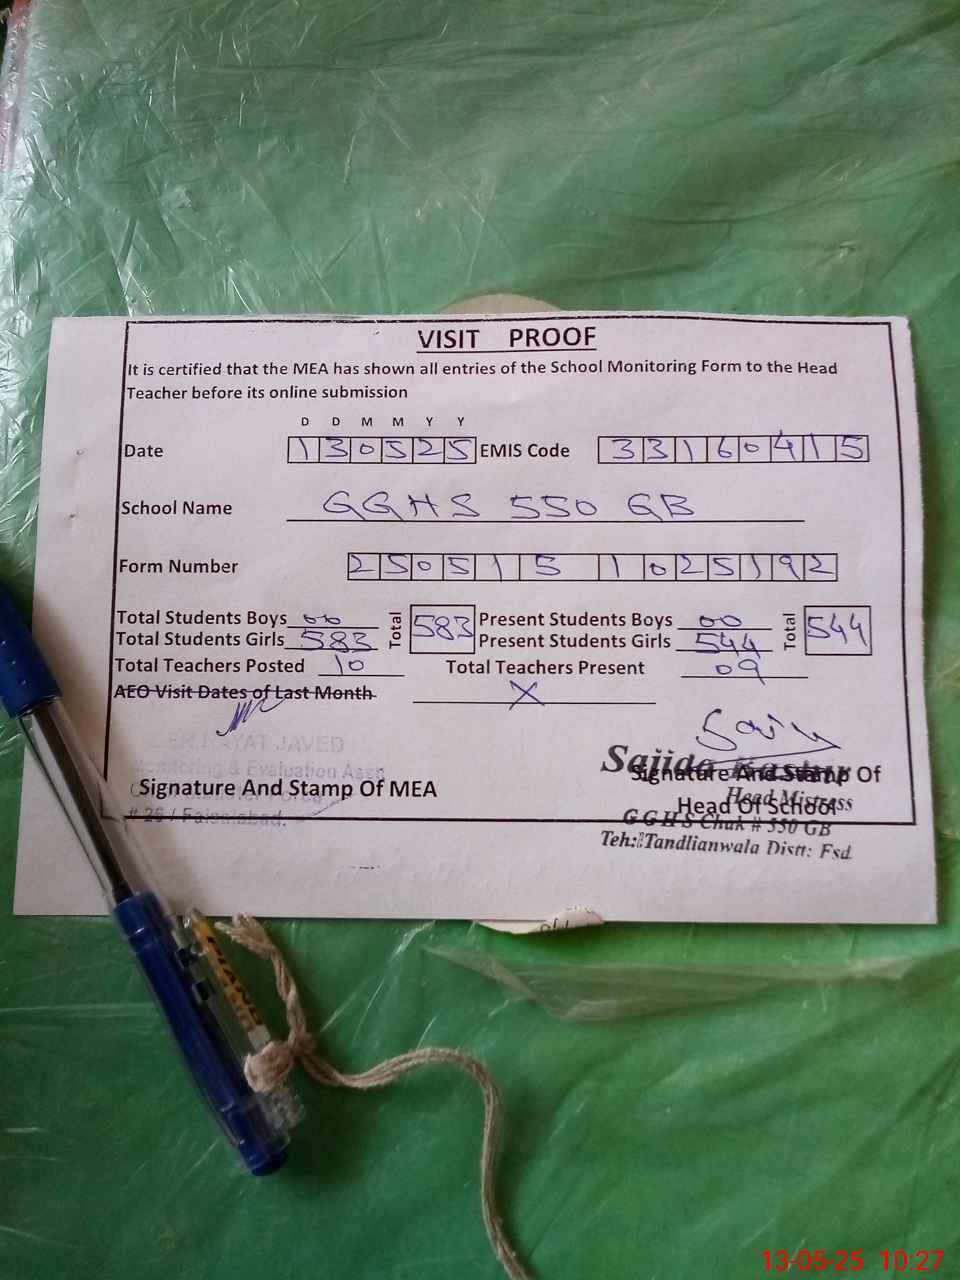 VISIT PROOF
It is certified that the MEA has shown all entries of the School Monitoring Form to the Head
Teacher before its online submission
D D M M Y Y
Date 130525 EMIS Code 33160415
School Name GGHS 550 GB
Form Number 2505151025192
Total Students Boys 00 Total 583 Present Students Boys 00 Total 544
Total Students Girls 583 Present Students Girls 544
Total Teachers Posted 10 Total Teachers Present 09
AEO Visit Dates of Last Month X
JAVED
Monitoring & Evaluation
Signature And Stamp Of MEA
# 26 / Faisalabad.
Sajida
Signature And Stamp Of
Head Mistress
Head Of School
GGHS Chak # 550 GB
Teh: Tandlianwala Distt: Fsd
PIANO
13-05-25 10:27